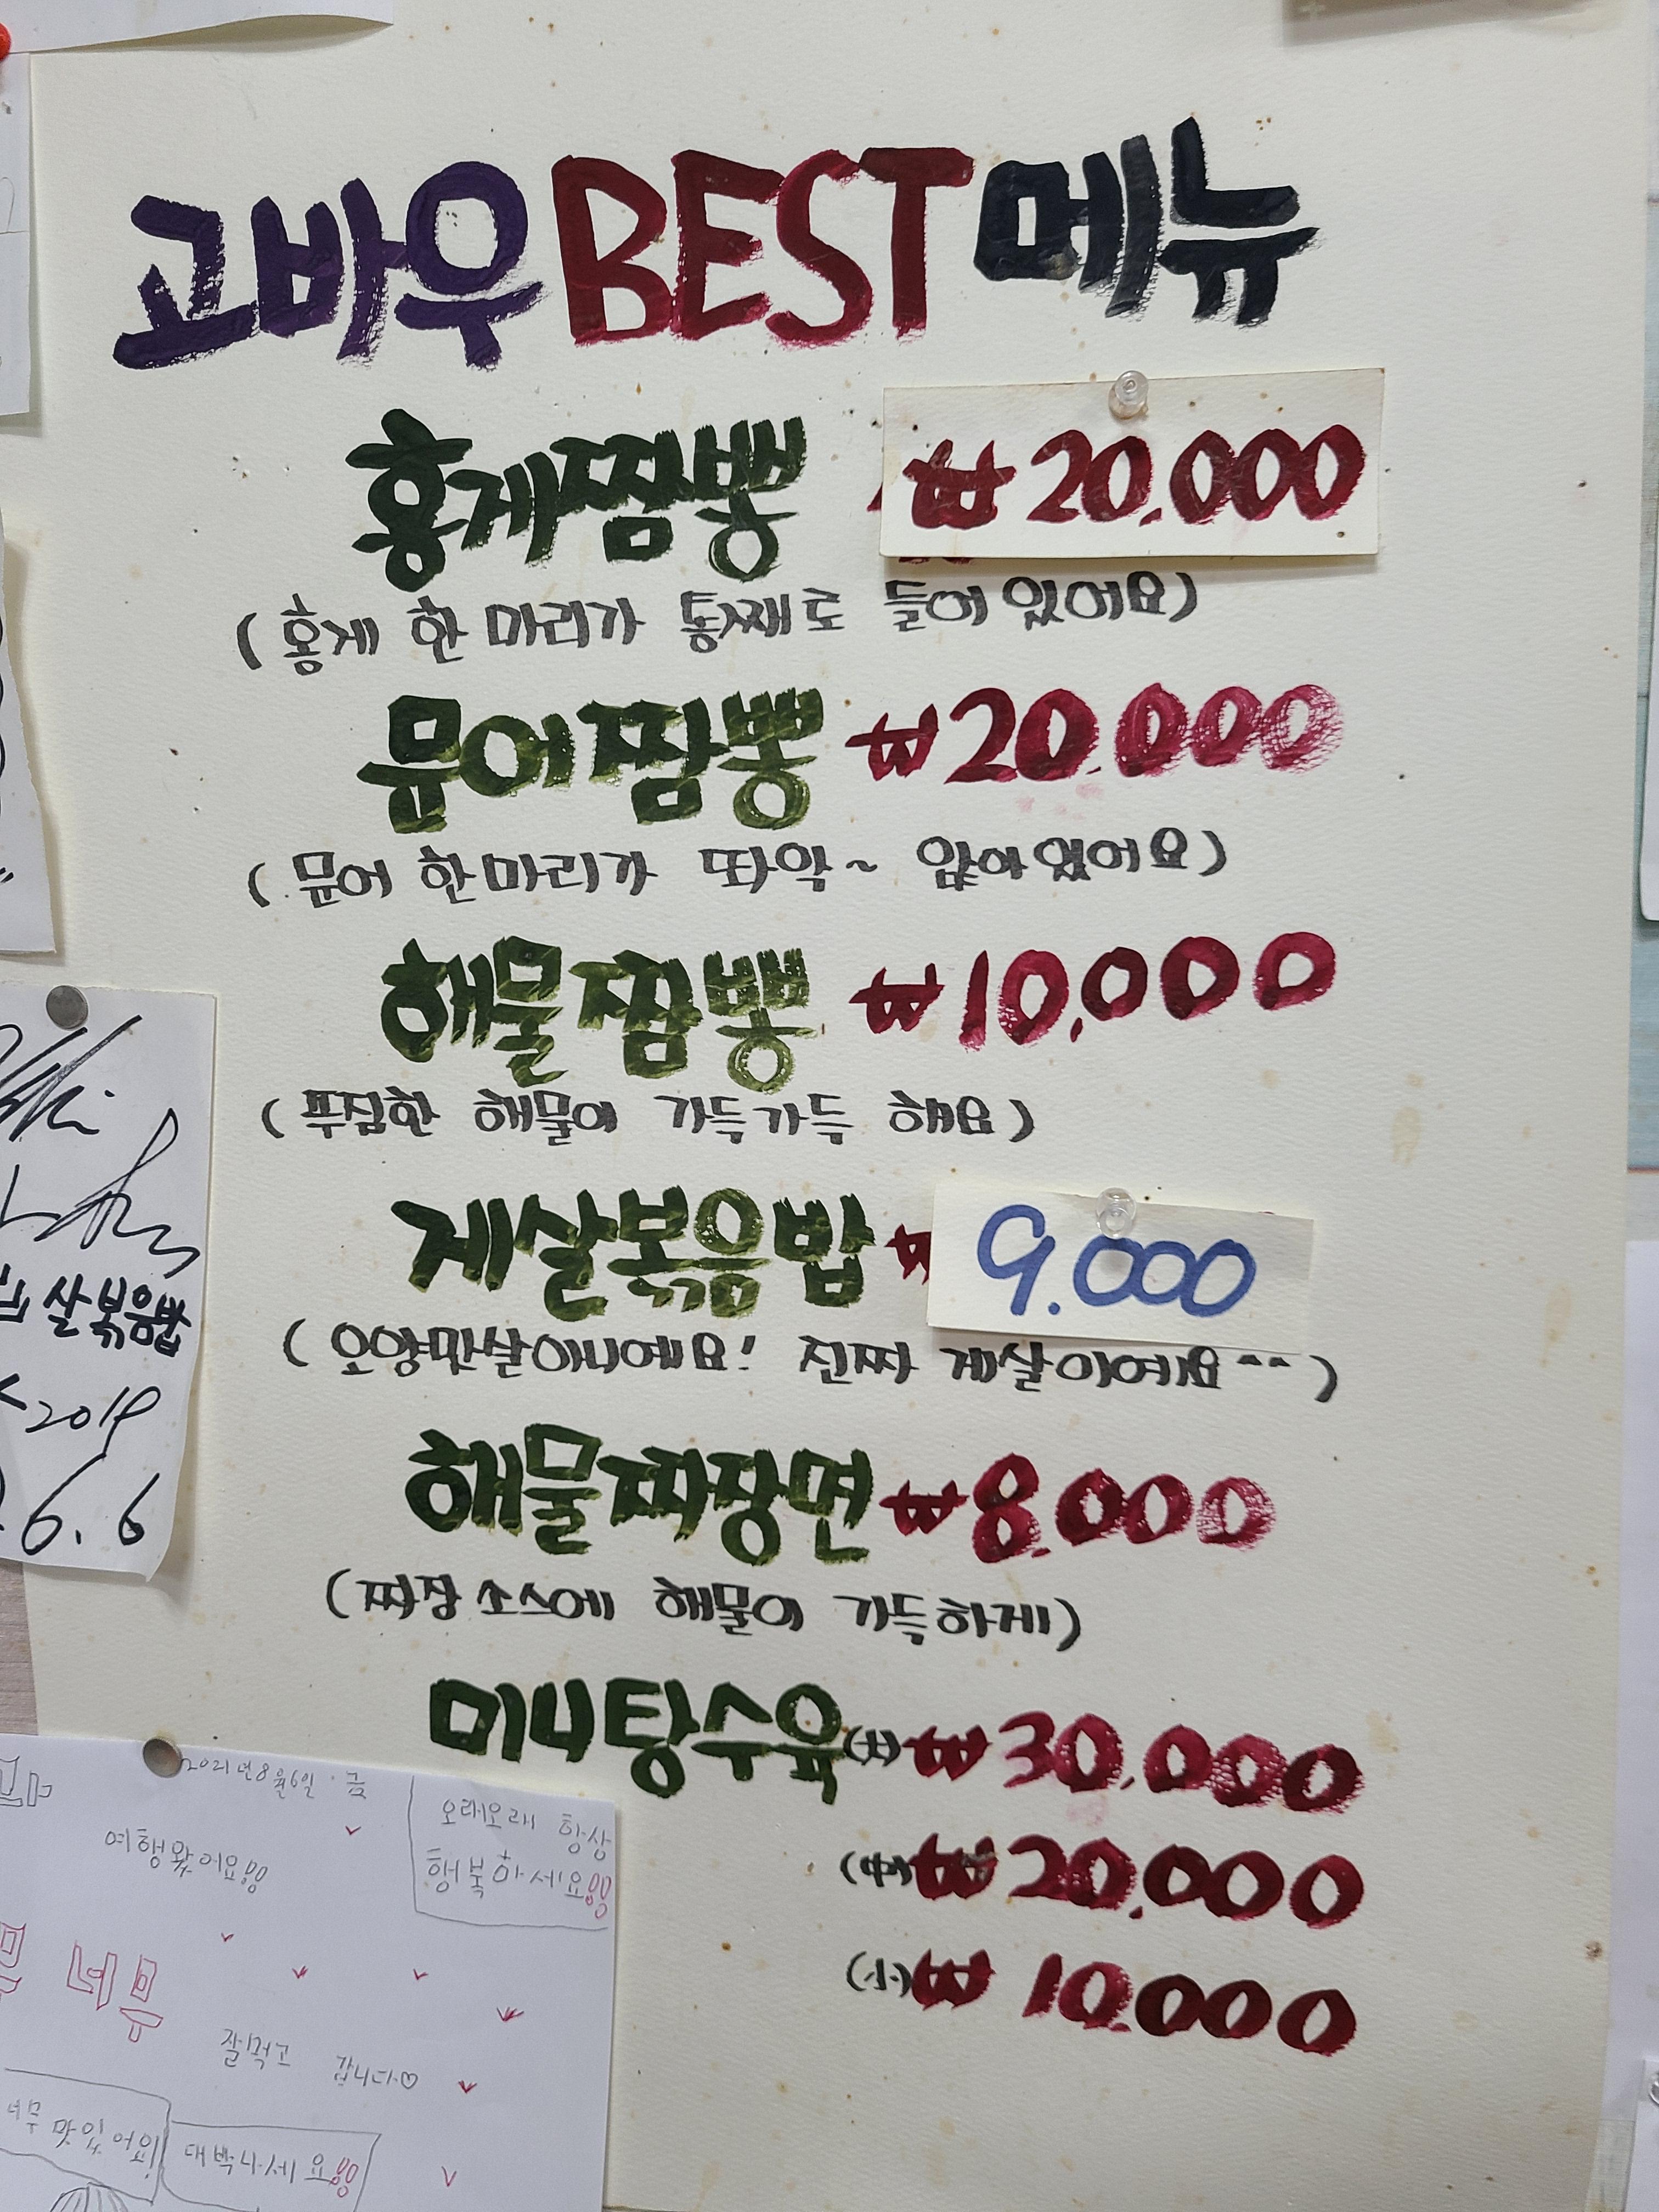 고바우 BEST 메뉴
홍게짬뽕 ₩20,000
(홍게 한마리가 통째로 들어있어요)
문어짬뽕 ₩20.000
(문어 한마리가 따악~ 앉아있어요)
해물짬뽕 ₩10,000
(푸짐한 해물이 가득가득 해요)
게살볶음밥 ₩ 9.000
(오양맛살아니예요! 진짜 게살이예요^^)
해물짜장면 ₩8.000
(짜장소스에 해물이 가득하게)
미니탕수육(大) ₩30,000
(中) ₩20,000
(小) ₩10,000
살볶음밥
2019
6.6
2021년8월6일·금
여행왔어요!!
오래오래 항상
행복하세요!!
너무
잘먹고 갑니다♡
너무 맛있어요!
대박나세요!!